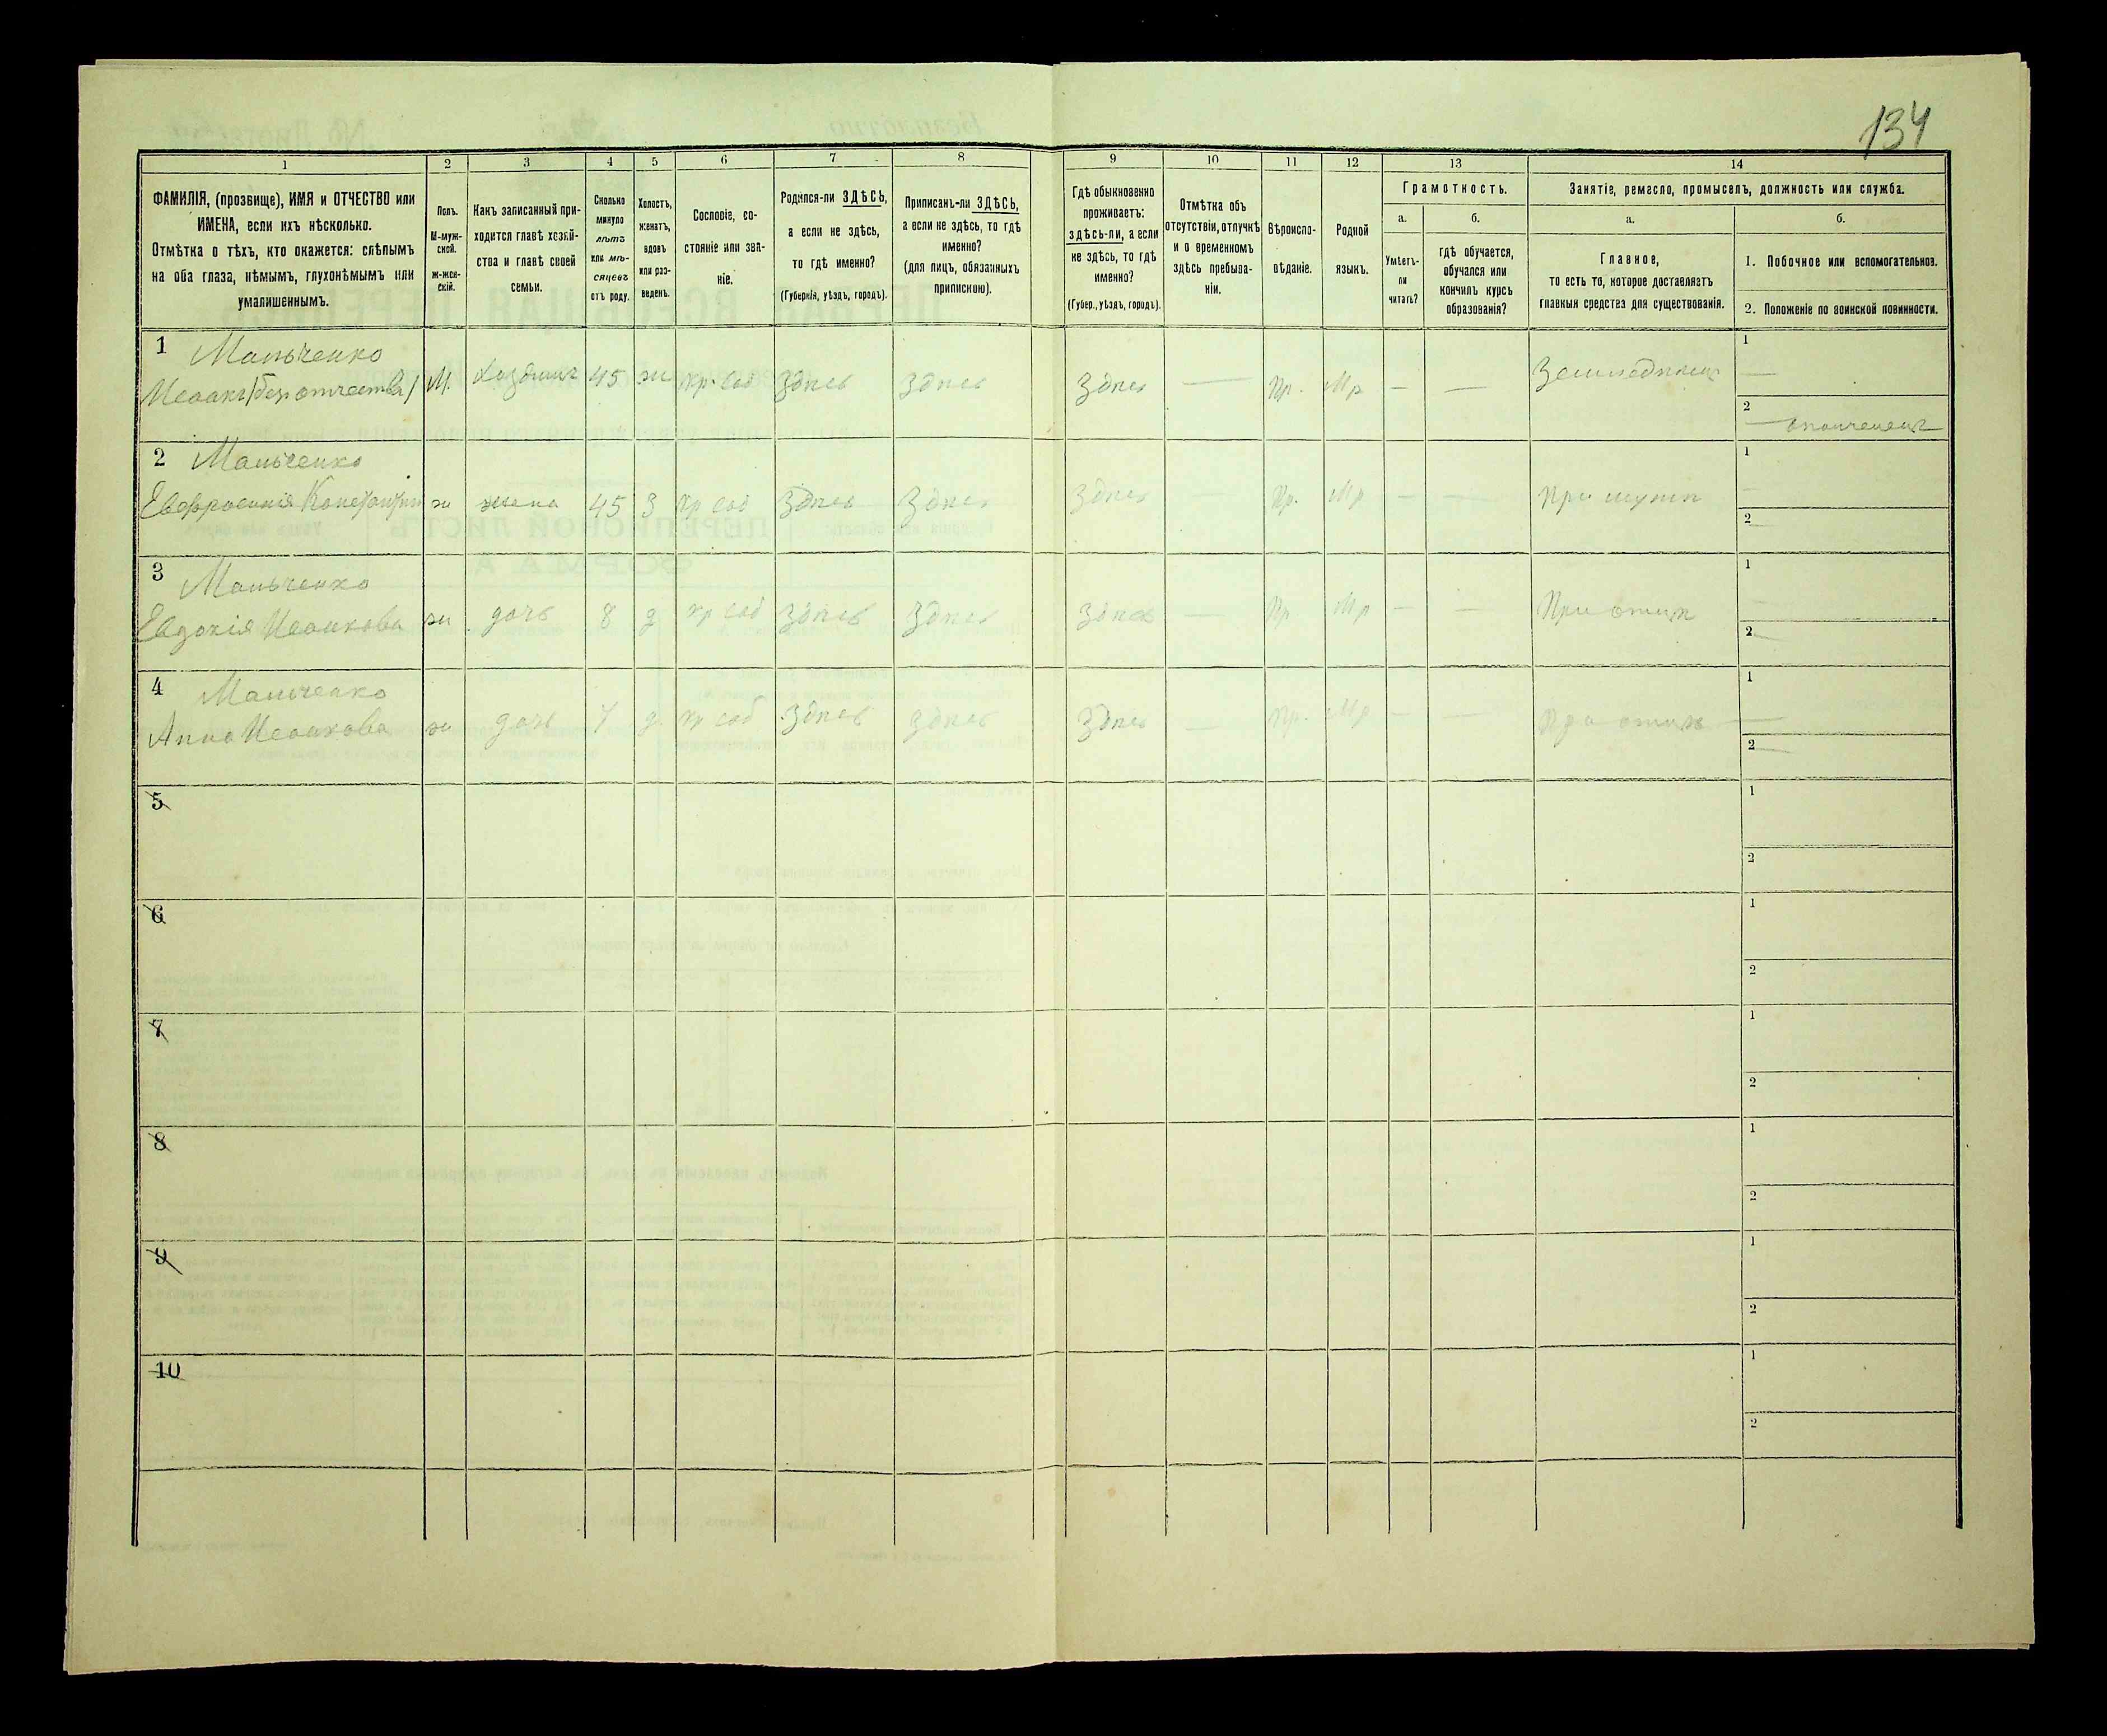 134
1 2 3 4 5 6 7 8 9 10 11 12 13 14
ФАМИЛІЯ, (прозвище), ИМЯ и ОТЧЕСТВО или
ИМЕНА, если ихъ нѣсколько.
Отмѣтка о тѣхъ, кто окажется: слѣпымъ
на оба глаза, нѣмымъ, глухонѣмымъ или
умалишеннымъ.
Полъ.
М-муж-
ской.
ж-жен-
скій.
Какъ записанный при-
ходится главѣ хозяй-
ства и главѣ своей
семьи.
Сколько
минуло
лѣтъ
или мѣ-
сяцевъ
отъ роду.
Холостъ,
женатъ,
вдовъ
или раз-
веденъ.
Сословіе, со-
стояніе или зва-
ніе.
Родился-ли ЗДѢСЬ,
а если не здѣсь,
то гдѣ именно?
(Губернія, уѣздъ, городъ).
Приписанъ-ли ЗДѢСЬ,
а если не здѣсь, то гдѣ
именно?
(для лицъ, обязанныхъ
припискою).
Гдѣ обыкновенно
проживаетъ:
здѣсь-ли, а если
не здѣсь, то гдѣ
именно?
(Губер., уѣздъ, городъ).
Отмѣтка объ
отсутствіи, отлучкѣ
и о временномъ
здѣсь пребыва-
ніи.
Вѣроиспо-
вѣданіе.
Родной
языкъ.
Грамотность.
а.
Умѣетъ-
ли
читать?
б.
гдѣ обучается,
обучался или
кончилъ курсъ
образованія?
Занятіе, ремесло, промыселъ, должность или служба.
а.
Главное,
то есть то, которое доставляетъ
главныя средства для существованія.
б.
1. Побочное или вспомогательное.
2. Положеніе по воинской повинности.
1 Мальченко
Исаакъ (безъ отчества) М. Хозяинъ 45 ж кр. соб Здѣсь Здѣсь Здѣсь — Пр. Мр — — Земледѣлецъ 1 —
2 — ополченецъ
2 Мальченко
Евфросинія Константин ж жена 45 З кр соб Здѣсь Здѣсь Здѣсь Пр. Мр — — При мужѣ 1 —
2 —
3 Мальченко
Евдокія Исаакова ж дочь 8 д кр соб Здѣсь Здѣсь Здѣсь — Пр Мр — — При отцѣ 1 —
2 —
4 Мальченко
Анна Исаакова ж дочь д кр соб Здѣсь Здѣсь Здѣсь — Пр. Мр — — При отцѣ 1 —
2 —
5 1
2
6 1
2
7 1
2
8 1
2
9 1
2
10 1
2